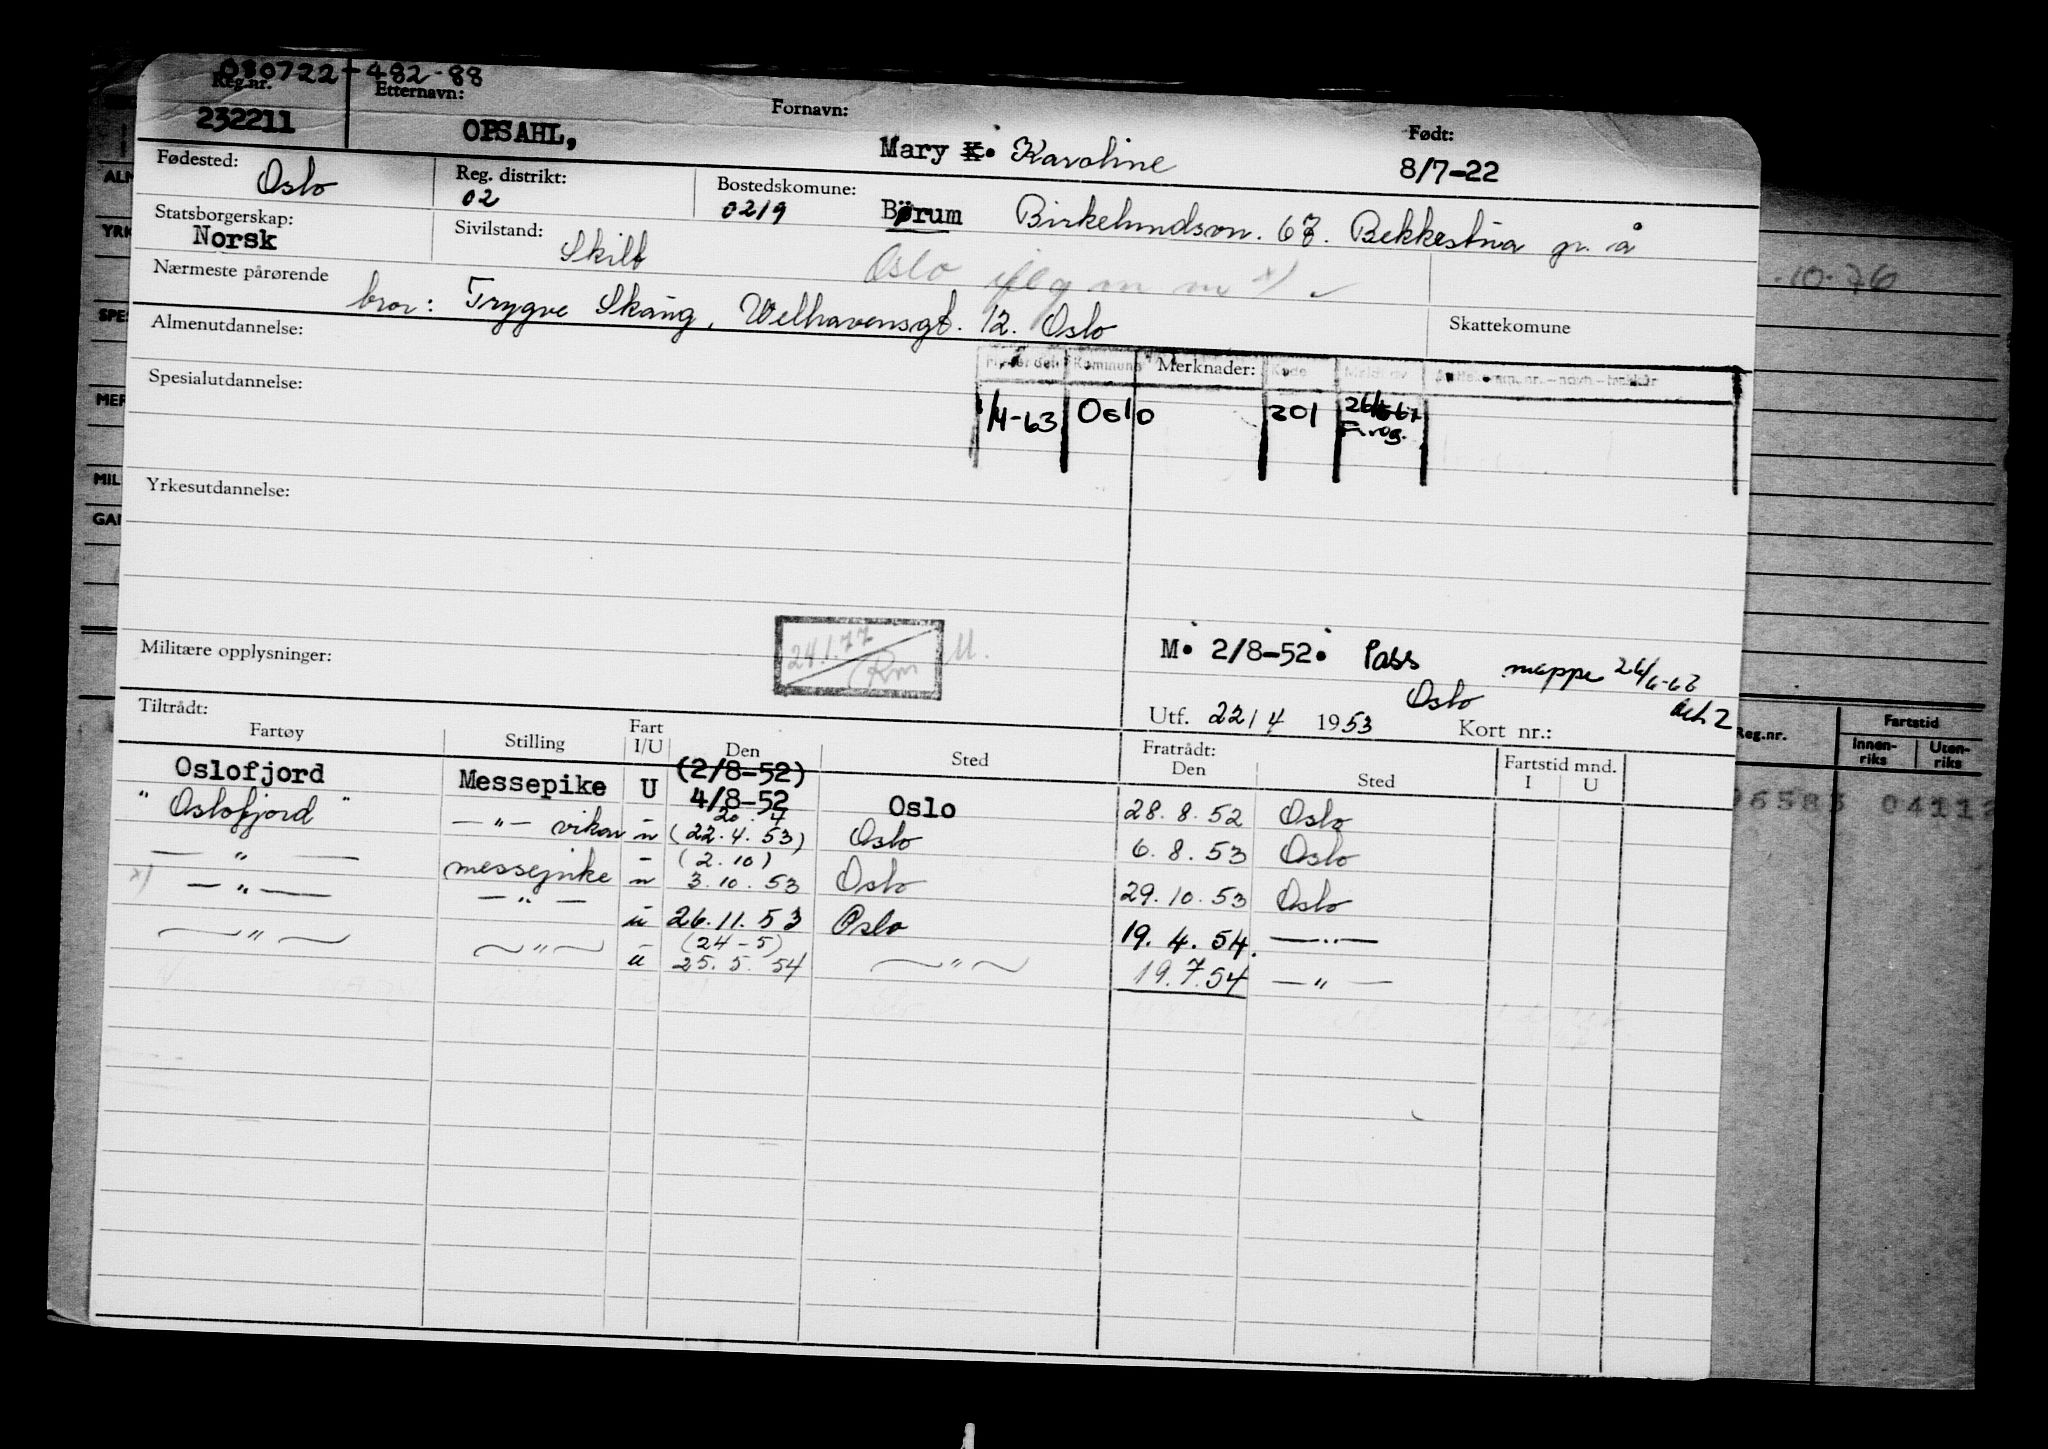 080722-482-88
Reg.nr. Etternavn: Fornavn: Født:
232211 OPSAHL, Mary K. Karoline 8/7-22
Fødested: Oslo Reg. distrikt: 02 Bostedskomune: 0219 Børum Birkelundsvn. 67. Bekkestua
Statsborgerskap: Norsk Sivilstand: Skilt Oslo
Nærmeste pårørende bror: Trygve Skaug, Welhavensgt. 12. Oslo
Almenutdannelse: Skattekomune
Kommune Merknader: Kode
1/4-63 Oslo 301
Spesialutdannelse:
Yrkesutdannelse:
24.1.77
Militære opplysninger: M. 2/8-52. Pass mappe
Oslo
Utf. 22/4 1953 Kort nr.:
Tiltrådt: Fratrådt:
Fartøy Stilling Fart I/U Den Sted Den Sted Fartstid mnd. I U
Oslofjord Messepike U (2/8-52) 4/8-52 Oslo 28.8.52 Oslo
" Oslofjord " — " — vikar u 20.4 (22.4.53) Oslo 6.8.53 Oslo
— " — messepike u (2.10) 3.10.53 Oslo 29.10.53 Oslo
x) — " — — " — u 26.11.53 Oslo 19.4.54. — " —
— " — — " — u (24-5) 25.5.54 — " — 19.7.54 — " —
ALM
YRK
SPES
MER
MIL
GAN
.10.76
Reg.nr. Fartstid
Innen-riks Uten-riks
96583 04112